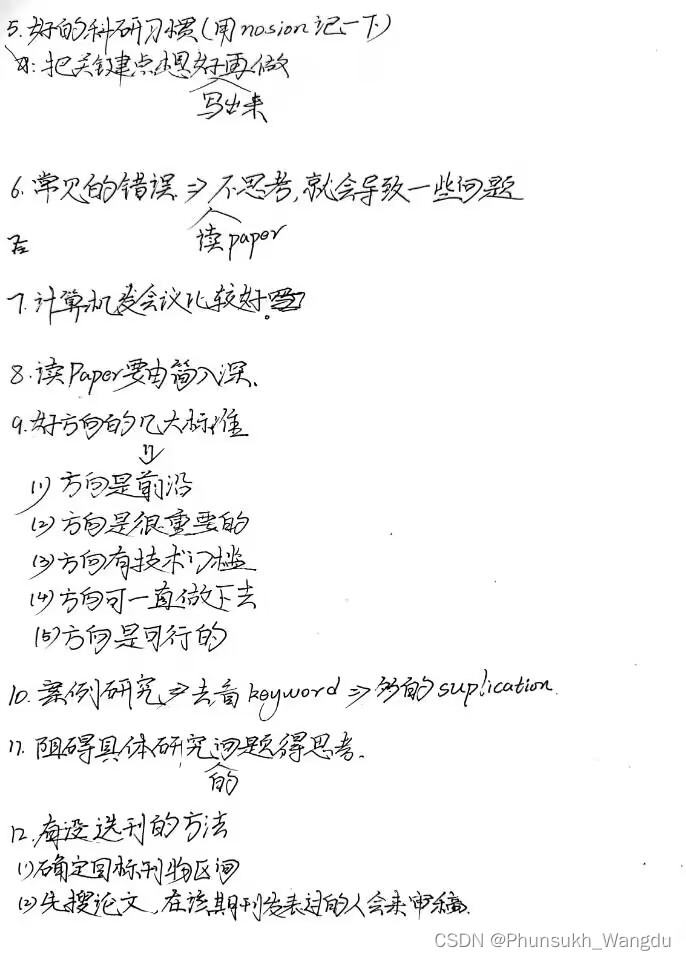 5.好的科研习惯(用nosion记一下)
如:把关键点想好再做
写出来
6.常见的错误⇒不思考,就会导致一些问题
读paper
7.计算机发会议比较好。
8.读Paper要由简入深.
9.好方向的几大标准
⇓
(1)方向是前沿
(2)方向是很重要的
(3)方向有技术门槛
(4)方向可一直做下去
(5)方向是可行的
10.案例研究⇒去看keyword⇒ 的suplication.
11.阻碍具体研究问题得思考.
的
12. 选刊的方法
(1)确定目标刊物区间
(2)先搜论文,在该期刊发表过的人会来审稿.
CSDN @Phunsukh_Wangdu